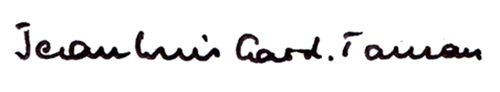 Jean Luis Card. Tauran